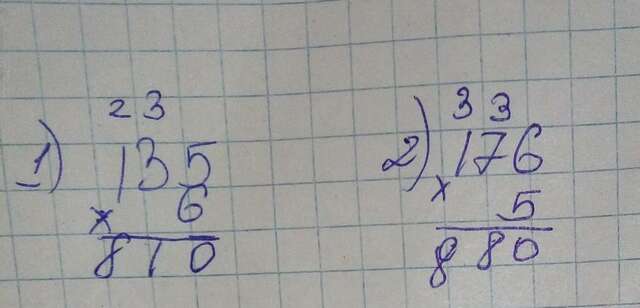 2 3
1) 135
× 6
810
3 3
2) 176
× 5
880